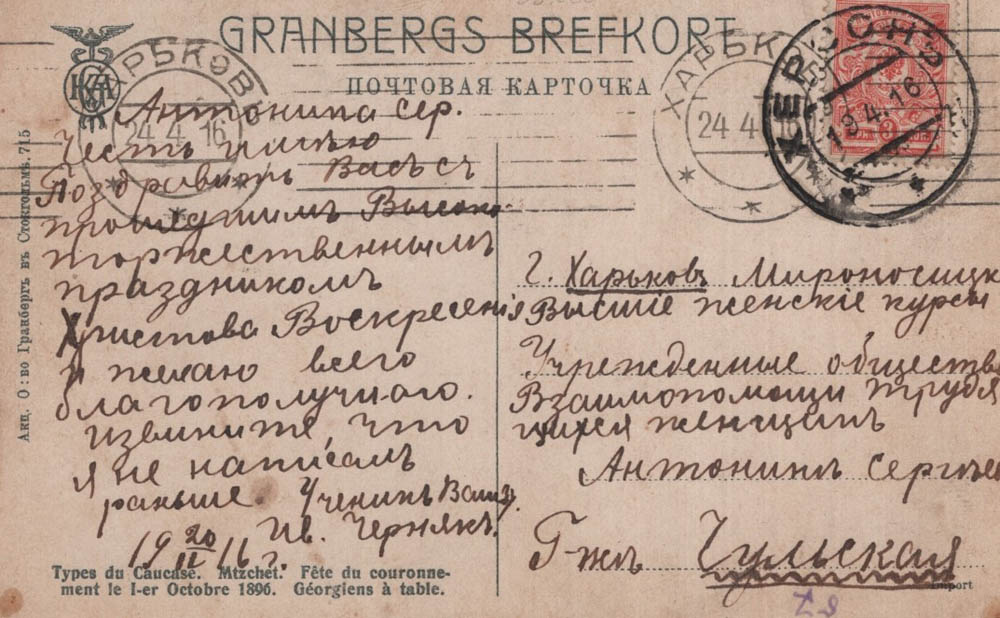 GRANBERGS BREFKORT
ПОЧТОВАЯ КАРТОЧКА
ХАРЬКОВ
24 4 16
ХАРЬКОВ
24 4 16
ХЕРСОНЪ
4.16
Акц. О:во Гранбергъ въ Стокгольмѣ. 715
Антонина Сер.
Честь имѣю
Поздравить Васъ съ
прошедшимъ Высоко-
торжественнымъ
праздникомъ
Христова Воскресенія
и желаю всего
благополучного.
извините, что
я не написалъ
раньше. Ученикъ Вашъ
Ив. Чернякъ.
19 20 16 г.
Types du Caucase. Mtzchet. Fête du couronne-
ment le I-er Octobre 1896. Géorgiens à table.
г. Харьковъ Мироносицк
Высшіе женскіе курсы
Учрежденные обществ
Взаимопомощи трудя
щихся женщинъ
Антонинѣ Сергѣе
Г-жѣ Чульская
Import